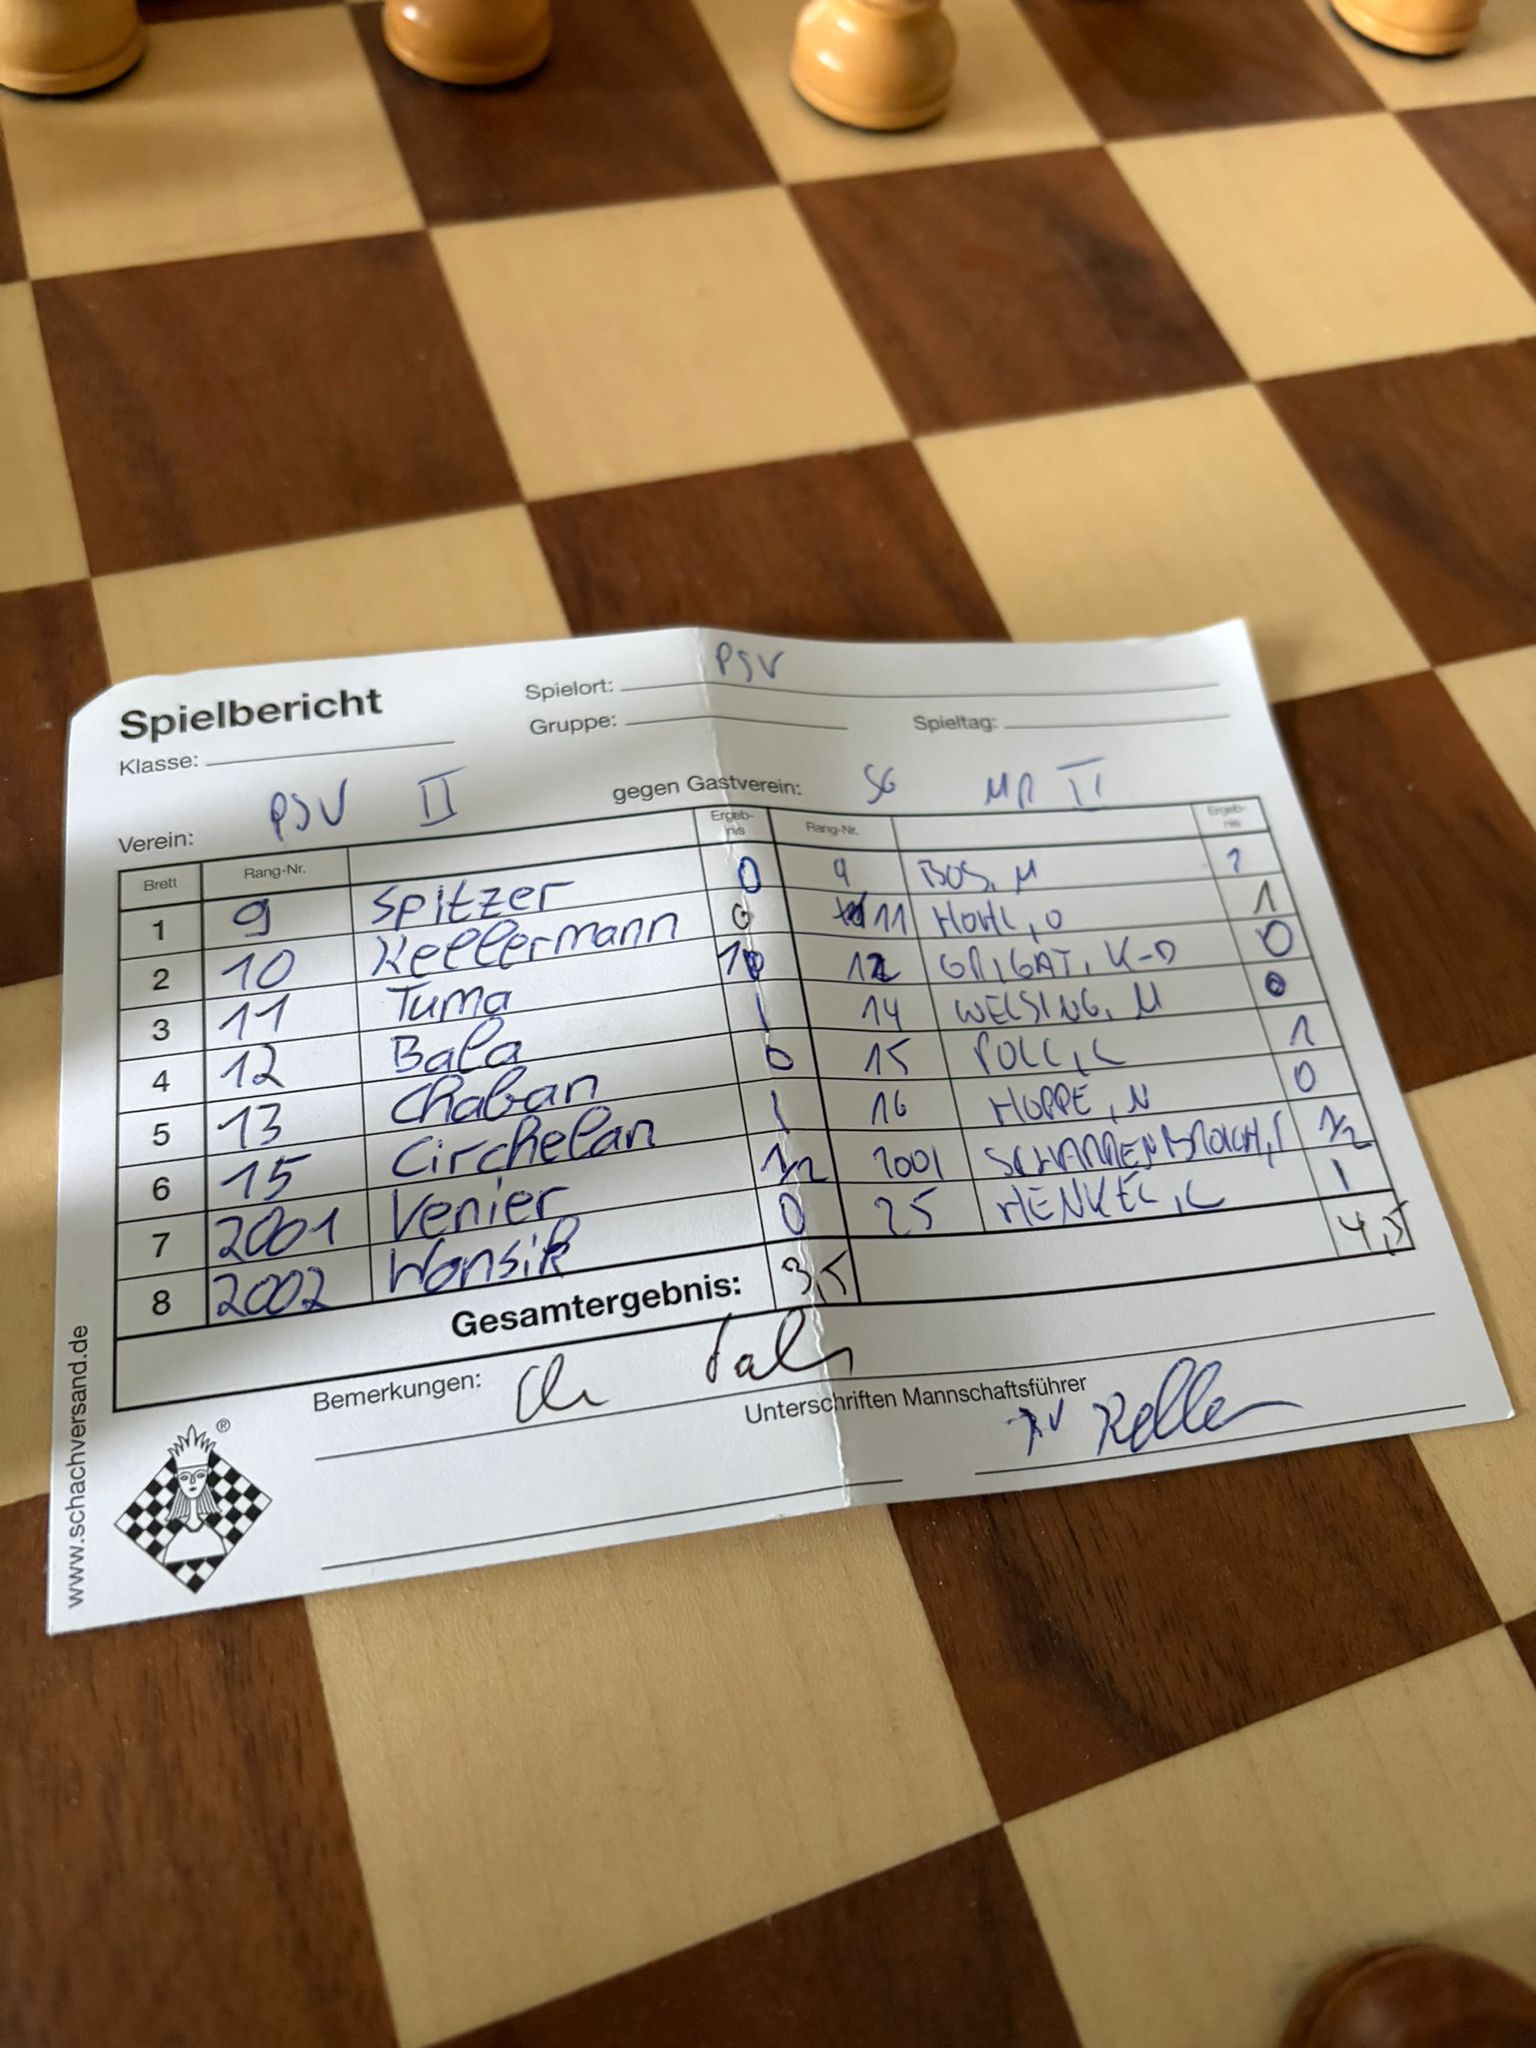 Spielbericht
Spielort: PSV
Klasse:
Gruppe: Spieltag:
Verein: PSV II gegen Gastverein: SG II
Brett Rang-Nr. Ergeb-nis Rang-Nr. Ergeb-nis
1 9 Spitzer 0 9 BOS, M 1
2 10 Kellermann 0 11 HOHL, O 1
3 11 Tuma 1 12 GRIGAT, K-D 0
4 12 Bala 1 14 WELSING, M 0
5 13 Chaban 0 15 POLL, L 1
6 15 Circhelan 1 16 HOPPE, N 0
7 2001 Venier 1/2 2001 1/2
8 2002 Wonsik 0 25 HENKEL, L 1
Gesamtergebnis: 3,5 4,5
Bemerkungen:
Unterschriften Mannschaftsführer
®
www.schachversand.de